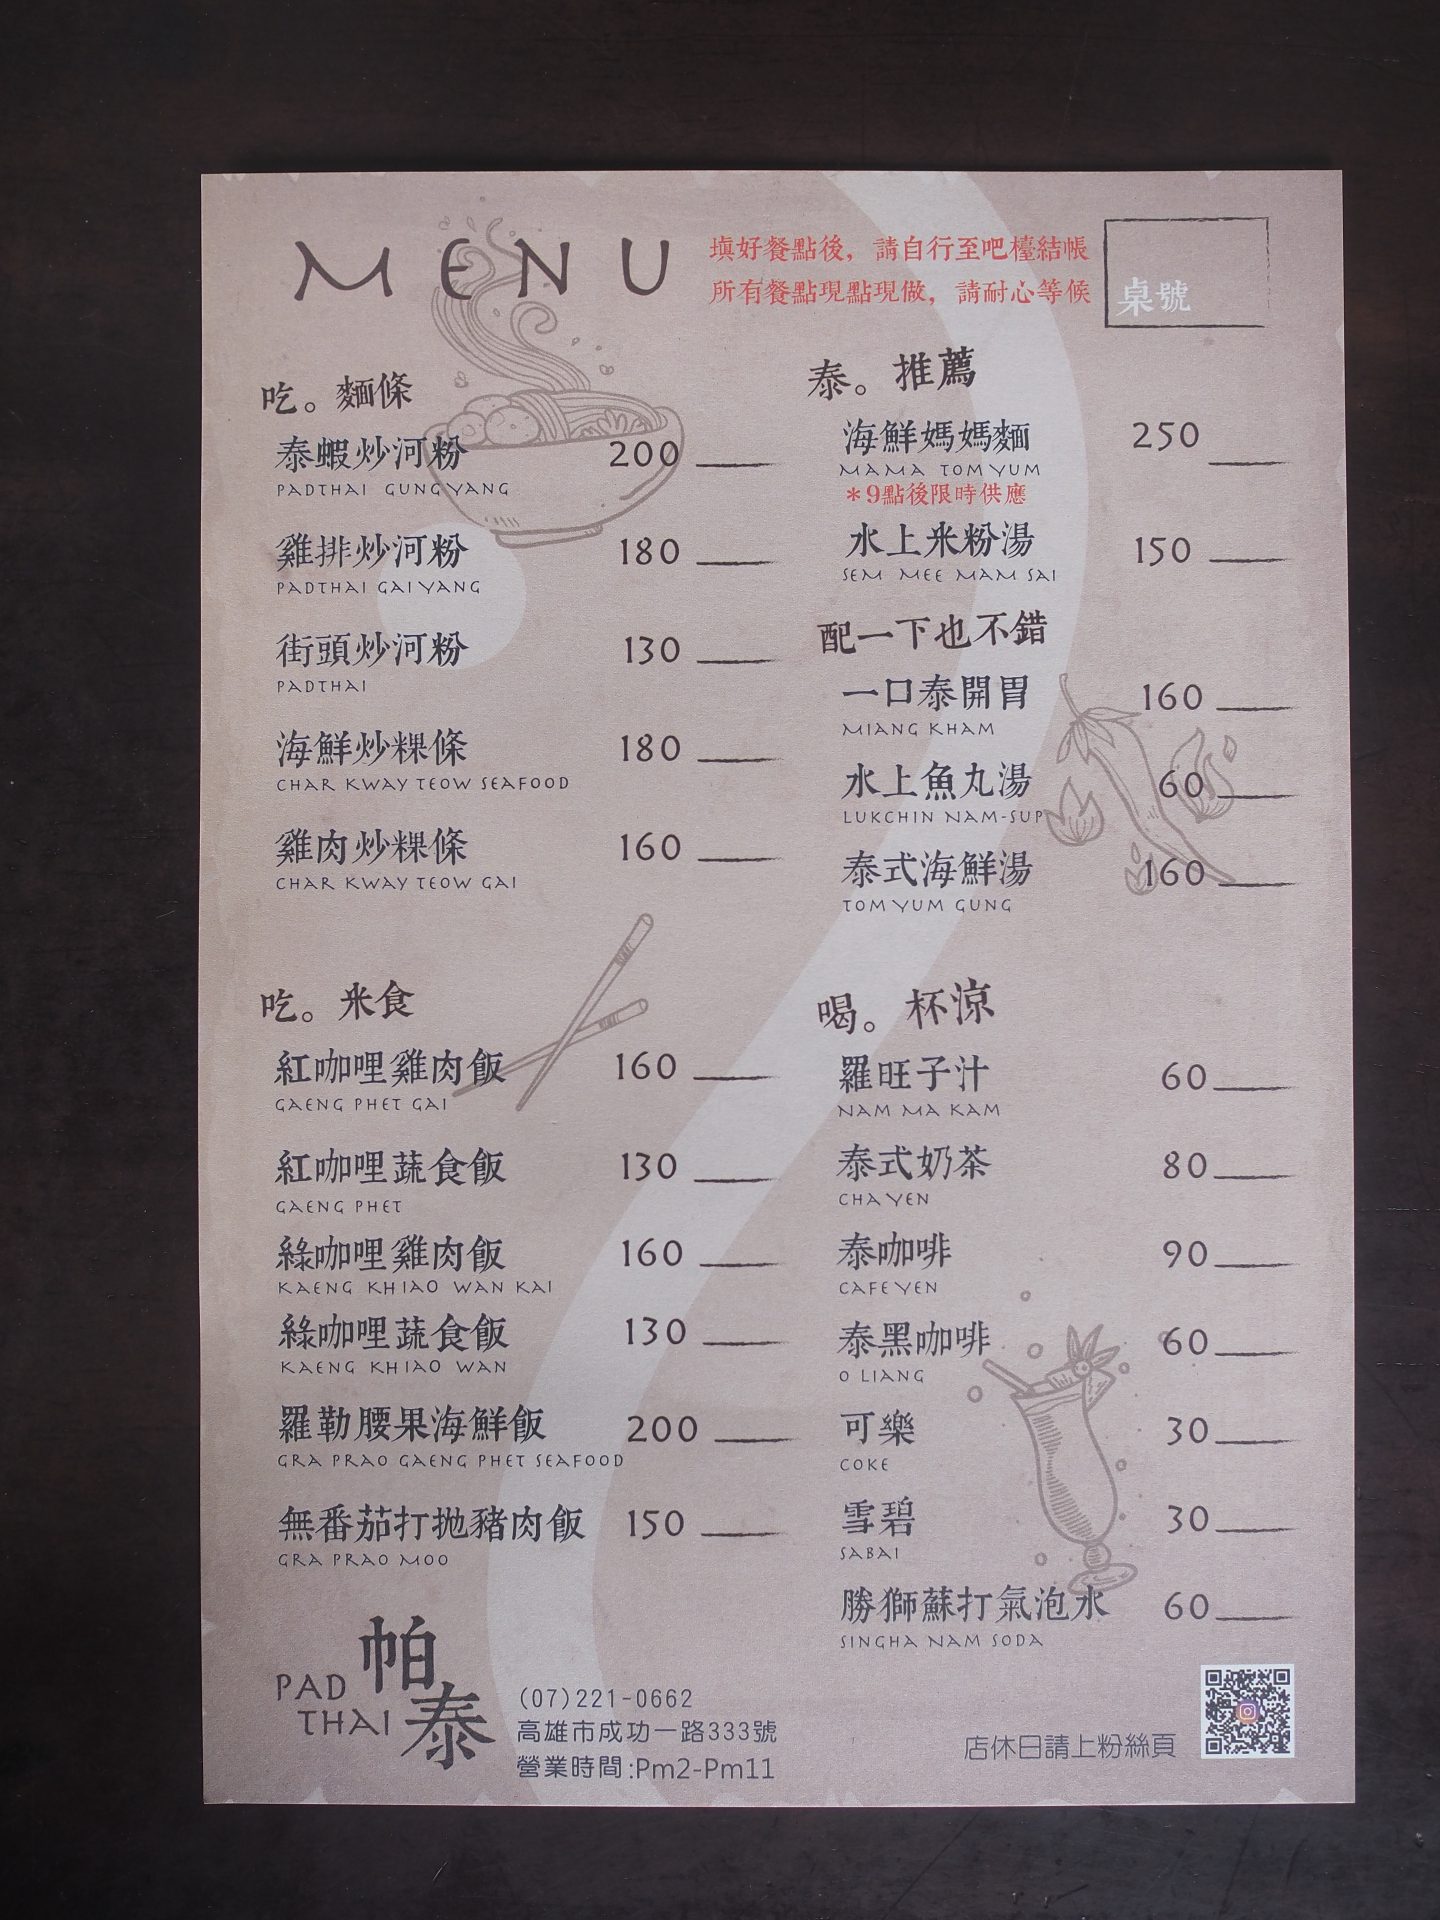 MENU
填好餐點後，請自行至吧檯結帳
所有餐點現點現做，請耐心等候
桌號
吃。麵條
泰蝦炒河粉 200
PADTHAI GUNG YANG
雞排炒河粉 180
PADTHAI GAI YANG
街頭炒河粉 130
PADTHAI
海鮮炒粿條 180
CHAR KWAY TEOW SEAFOOD
雞肉炒粿條 160
CHAR KWAY TEOW GAI
吃。米食
紅咖哩雞肉飯 160
GAENG PHET GAI
紅咖哩蔬食飯 130
GAENG PHET
綠咖哩雞肉飯 160
KAENG KHIAO WAN KAI
綠咖哩蔬食飯 130
KAENG KHIAO WAN
羅勒腰果海鮮飯 200
GRA PRAO GAENG PHET SEAFOOD
無番茄打拋豬肉飯 150
GRA PRAO MOO
泰。推薦
海鮮媽媽麵 250
MAMA TOM YUM
*9點後限時供應
水上米粉湯 150
SEM MEE MAM SAI
配一下也不錯
一口泰開胃 160
MIANG KHAM
水上魚丸湯 60
LUKCHIN NAM-SUP
泰式海鮮湯 160
TOM YUM GUNG
喝。杯涼
羅旺子汁 60
NAM MA KAM
泰式奶茶 80
CHA YEN
泰咖啡 90
CAFE YEN
泰黑咖啡 60
O LIANG
可樂 30
COKE
雪碧 30
SABAI
勝獅蘇打氣泡水 60
SINGHA NAM SODA
帕泰
PAD THAI
(07)221-0662
高雄市成功一路333號
營業時間:Pm2-Pm11
店休日請上粉絲頁